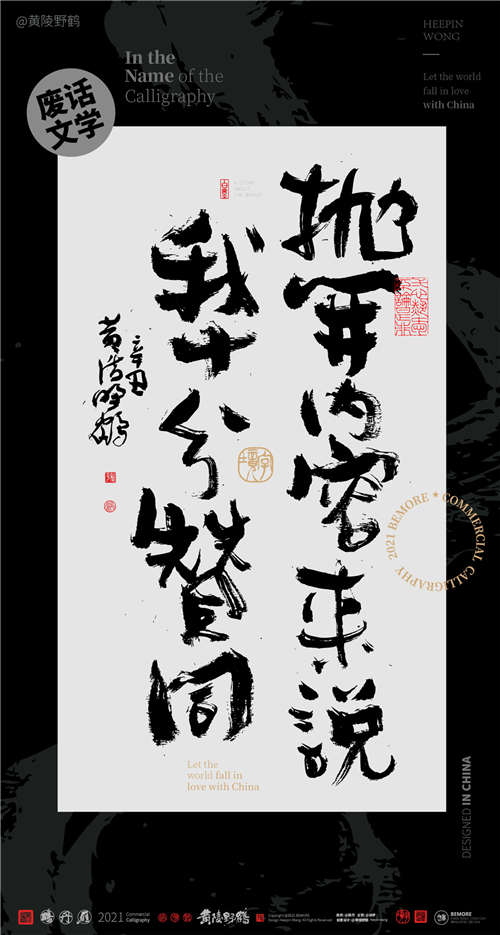 @黄陵野鹤
HEEPIN
WONG
In the
Name of the
Calligraphy
Let the world
fall in love
with China
废话
文学
抛开内容来说
我十分赞同
辛丑
黄陵野鹤
2021 BEMORE * COMMERCIAL CALLIGRAPHY
Let the
world fall in
love with China
DESIGNED IN CHINA
2021
Commercial
Calligraphy
黄陵野鹤
BEMORE